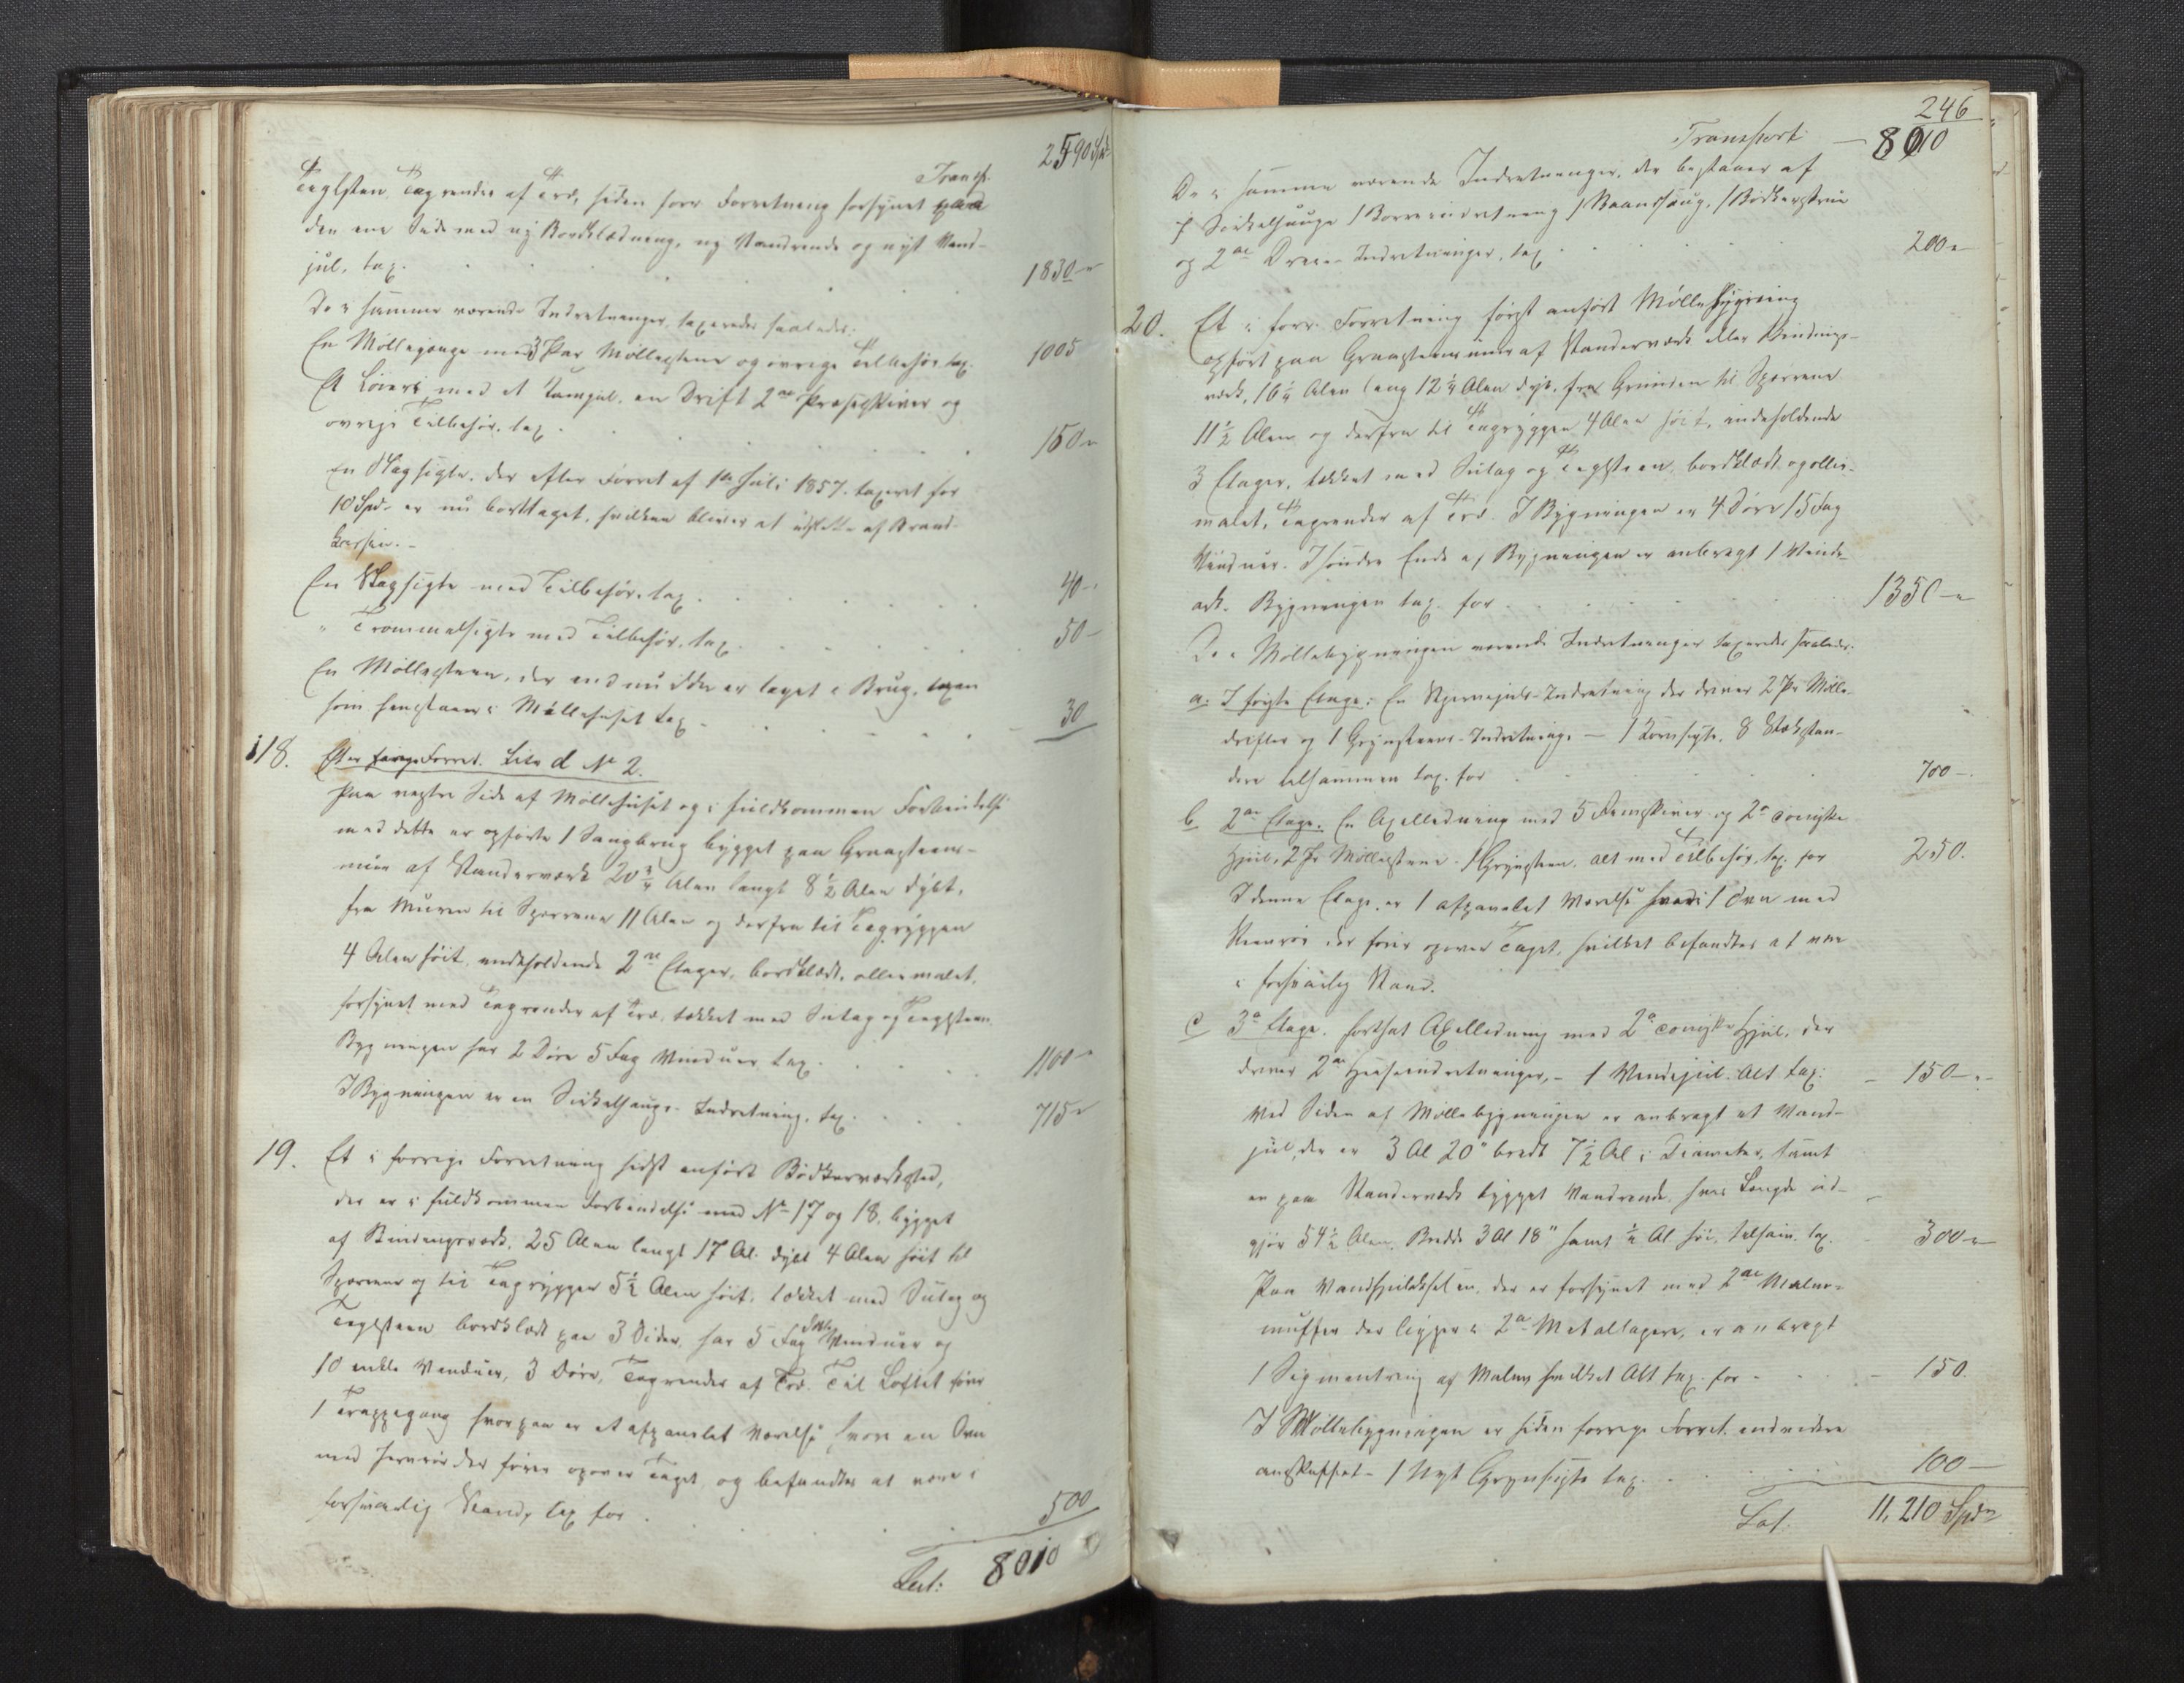 Transp. 2590 Spd
Teglsten, Tagrender af Træ, siden forr. Forretning forsynet paa
den ene Side med ny Bordklædning, ny Vandrende og nyt Vand-
jul, tax. 1830 "
De i samme værende Indretninger taxeredes saaledes:
En Møllegange med 3 Par Møllestene og øvrige Tilbehør, tax. 1005
Et Løieri med et Kamjul, en Drift 2de Skiver og
øvrige Tilbehør, tax. 150 "
En Slagsigte, der efter Forret. af 1ste Juli 1857 taxeret for
10 Spd. er nu borttaget, hvilken bliver at udslette af Brand-
kassen. -
En Slagsigte med Tilbehør, tax. 40 -
" Trommelsigte med Tilbehør, tax. 50 -
En Møllesteen, der endnu ikke er taget i Brug, men
som henstaaer i Møllehuset tax. 30
118. Efter forrige Forret. Litr d No 2.
Paa vestre Side af Møllehuset og i fuldkommen Forbindelse
med dette er opførte 1 Saugbrug bygget paa Graasteens-
muur af Standerværk 20 3/4 Alen langt 8 1/2 Alen dybt,
fra Muren til Sperrene 11 Alen og derfra til Tagryggen
4 Alen høit, indeholdende 2de Etager, bordklædt, oliemalet,
forsynet med Tagrender af Træ, tækket med Sutag og Teglsteen.
Bygningen har 2 Døre 5 Fag Vinduer, tax. 1100 "
I Bygningen er en Sirkelsaugs-Indretning, tax. 715 "
19. Et i forrige Forretning sidst anført Bødkerværksted,
der er i fuldkommen Forbindelse med No 17 og 18, bygget
af Bindingsværk, 25 Alen langt 17 Al. dybt 4 Alen høit til
Sperrene og til Tagryggen 5 1/2 Alen høit, tækket med Sutag og
Teglsteen bordklædt paa 3 Sider, har 5 Fag Vinduer og
10 enkle Vinduer, 3 Døre, Tagrender af Træ. Til Loftet fører
1 Trappegang hvorpaa er et afpanelet Værelse, hvori en Ovn
med Jernrør der fører opover Taget, og befandtes at være i
forsvarlig Stand, tax for 500
Lat: 8010
246
Transport - 8010
De i samme værende Indretninger, der bestaaer af
1 Sirkelsauge 1 Boreindretning 1 Baandsaug, 1
og 2de Indretninger, tax. 200 "
20. Et i forr. Forretning først anført Møllebygning
opført paa Graasteensmuur af Standerværk eller Bindings-
værk, 16 1/4 Alen lang 12 1/4 Alen dyb, fra Grunden til Sperrene
11 1/2 Alen og derfra til Tagryggen 4 Alen høit, indeholdende
3 Etager, tækket med Sutag og Teglsteen, bordklædt og ollie-
malet, Tagrender af Træ. I Bygningen er 4 Døre 15 Fag
Vinduer. I søndre Ende af Bygningen er anbragt 1 Vinde-
ark. Bygningen tax. for 1350 - "
De i Møllebygningen værende Indretninger taxeredes saaledes:
a. I første Etage: En Stjernejuls-Indretning der driver 2 Par Mølle-
drifter og 1 Grynsteens-Indretning - 1 Kornsigte, 8 Stk Stan-
dere tilsammen tax. for 700 -
b 2den Etage. En Axelledning med 5 Remskiver og 2de coniske
Hjul, 2 Par Møllestene 1 Grynsteen, alt med Tilbehør, tax. for 250.
I denne Etage er 1 afpanelet Værelse hvori 1 Ovn med
Steenrør der fører opover Taget, hvilket befandtes at være
i forsvarlig Stand.
c 3de Etage. fortsat Axelledning med 2de coniske Hjul, der
driver 2de Heiseindretninger, - 1 Vindejul. Alt tax: - 150 -
Ved Siden af Møllebygningen er anbragt et Vand-
jul, der er 3 Al 20" bredt 7 1/2 Al i Diameter, samt
en paa Standerværk bygget Vandrende, hvis Længde ud-
gjør 54 1/2 Alen, Bredde 3 Al 18" samt 1/2 Al høi, tilsam. tax. 300 "
Paa Vandhjulakselen, der er forsynet med 2de Malm-
muffer der ligger i 2de Metallagere, er anbragt
1 Segmentring af Malm hvilket Alt tax. for - 150.
I Møllebygningen er siden forrige Forret. endvidere
anskaffet - 1 Nyt Grynsigte tax. 100 -
Lat. 11,210 Spd